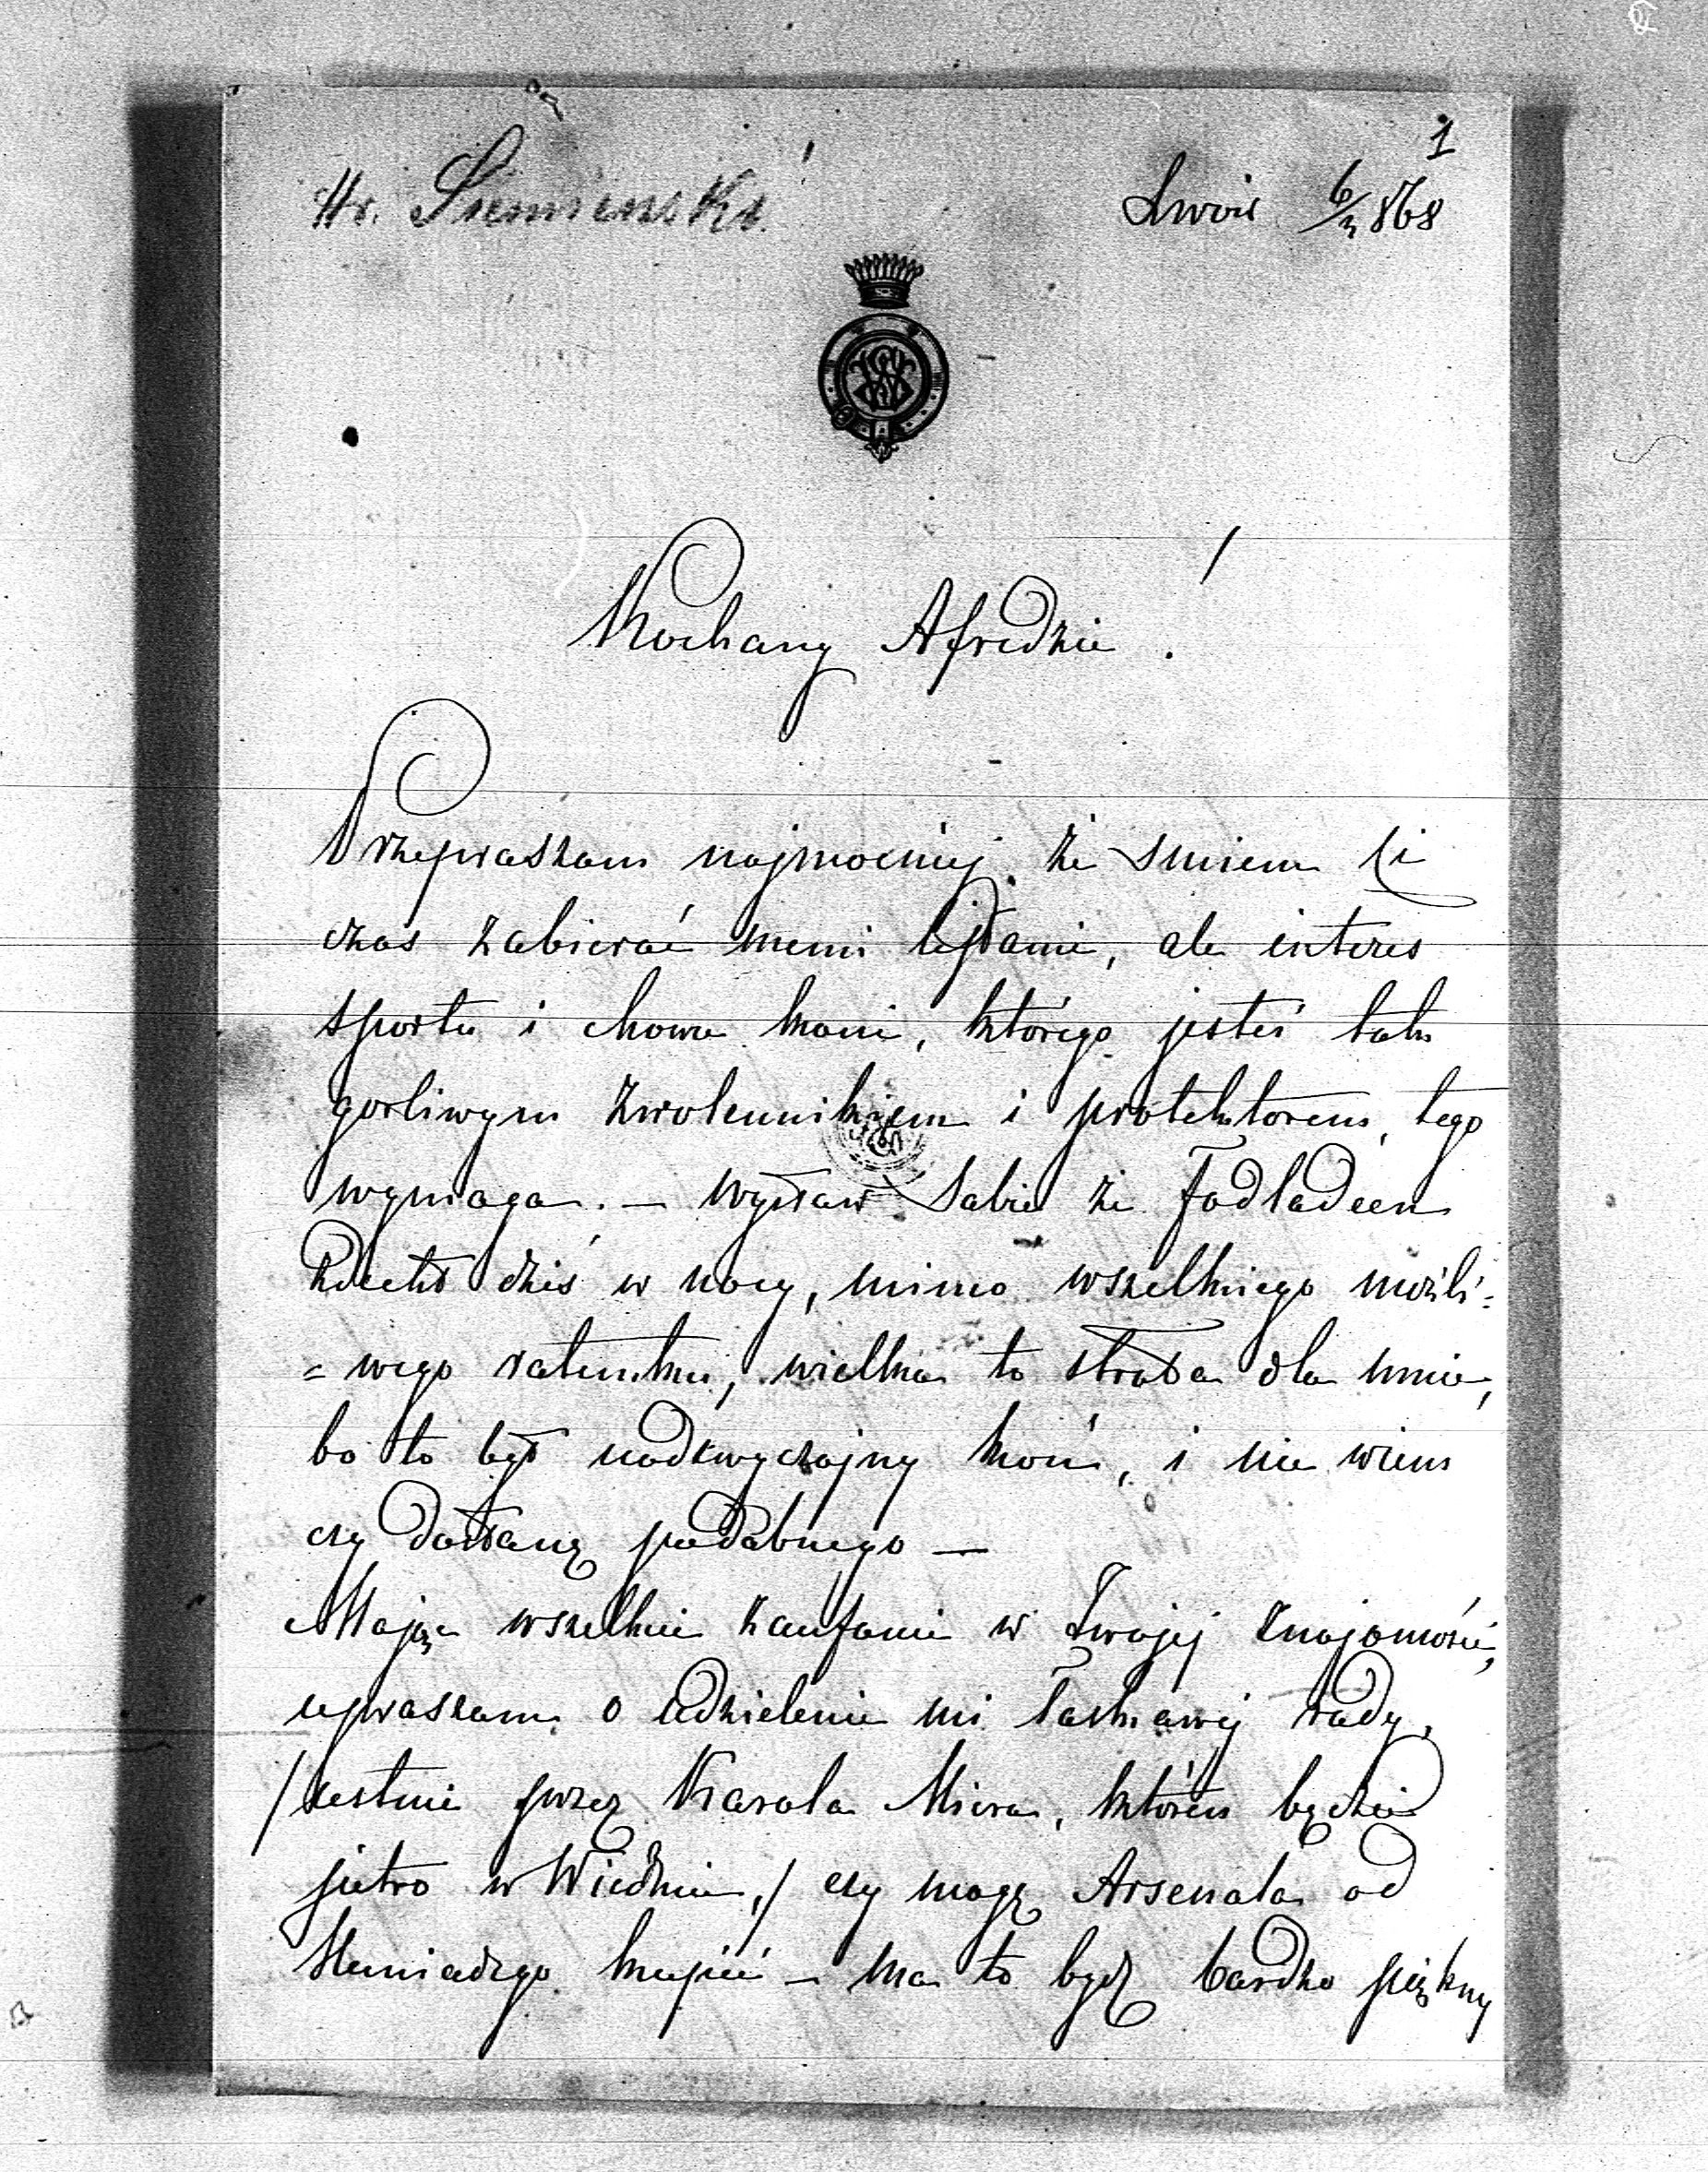 1
Hr. Siemieński
Lwów 6/3 868
Kochany Afredzie!
Przepraszam najmocniej że smiem Ci
czas zabierać memi listami, ale interes
sportu i chowu koni, którego jesteś tak
gorliwym zwolennikiem i protektorem, tego
wymaga. – wystaw sobie że Fadladeen
zdechł dziś w nocy, mimo wszelkiego możli=
=wego ratunku, wielka to strata dla mnie,
bo to był nadzwyczajny koń, i nie wiem
czy dostanę podobnego –
Mając wszelkie zaufanie w Twojej znajomości,
upraszam o udzielenie mi łaskawej rady,
/ustnie przez Karola Miera, któren będzie
jutro w Wiedniu,/ czy mogę Arsenala od
Huniadego kupić – ma to bydź bardzo piękny